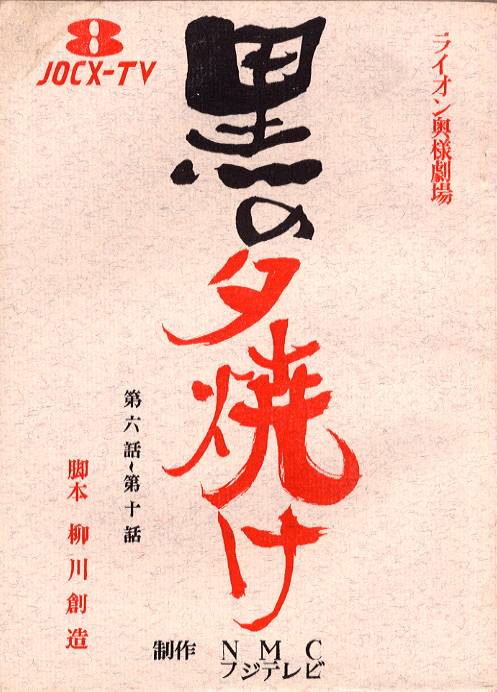 ライオン奥様劇場
8
JOCX-TV
黒の夕焼け
第六話~第十話
脚本 柳川創造
制作 NMC
フジテレビ